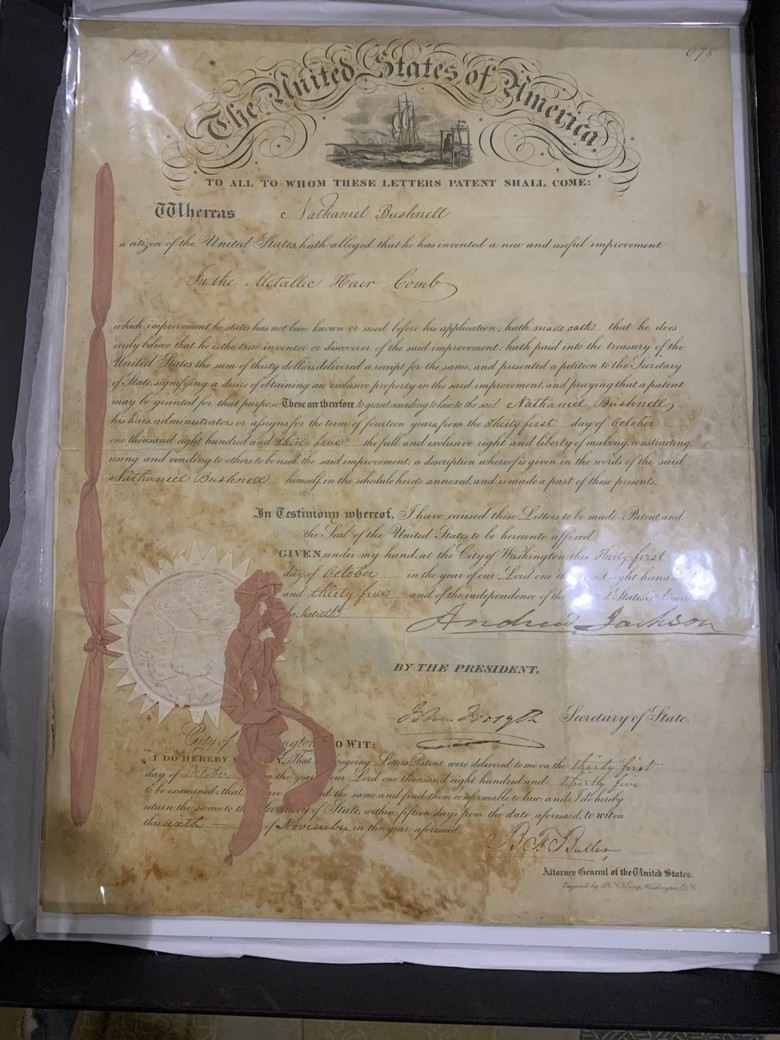 078
The United States of America
TO ALL TO WHOM THESE LETTERS PATENT SHALL COME:
Whereas Nathaniel Bushnell
a citizen of the United States, hath alleged that he has invented a new and useful improvement
In the Metallic Hair Comb
which improvement he states has not been known or used before his application; hath made oath that he does
verily believe that he is the true inventor or discoverer of the said improvement; hath paid into the treasury of the
United States the sum of thirty dollars, delivered a receipt for the same, and presented a petition to the Secretary
of State, signifying a desire of obtaining an exclusive property in the said improvement, and praying that a patent
may be granted for that purpose. These are therefore to grant, according to law, to the said Nathaniel Bushnell,
his heirs, administrators or assigns, for the term of fourteen years, from the thirty first day of October
one thousand eight hundred and thirty five the full and exclusive right and liberty of making, constructing,
using and vending to others to be used, the said improvement; a description whereof is given in the words of the said
Nathaniel Bushnell himself, in the schedule hereto annexed, and is made a part of these presents.
In Testimony whereof, I have caused these Letters to be made Patent, and
the Seal of the United States to be hereunto affixed.
GIVEN under my hand, at the City of Washington, this Thirty first
day of October in the year of our Lord one
and thirty five and of the independence of the States
the Sixtieth
Andrew Jackson
BY THE PRESIDENT.
John Forsyth Secretary of State.
City of TO WIT:
I DO HEREBY That Letters Patent were delivered to me on the thirty first
day of October in the year our Lord one thousand eight hundred and thirty five
to be examined; that the same, and find them conformable to law; and I do hereby
return the same to the of State, within fifteen days from the date aforesaid, to wit: on
this sixth of November in the year aforesaid.
B. F. Butler,
Attorney General of the United States.
Engraved by Washington